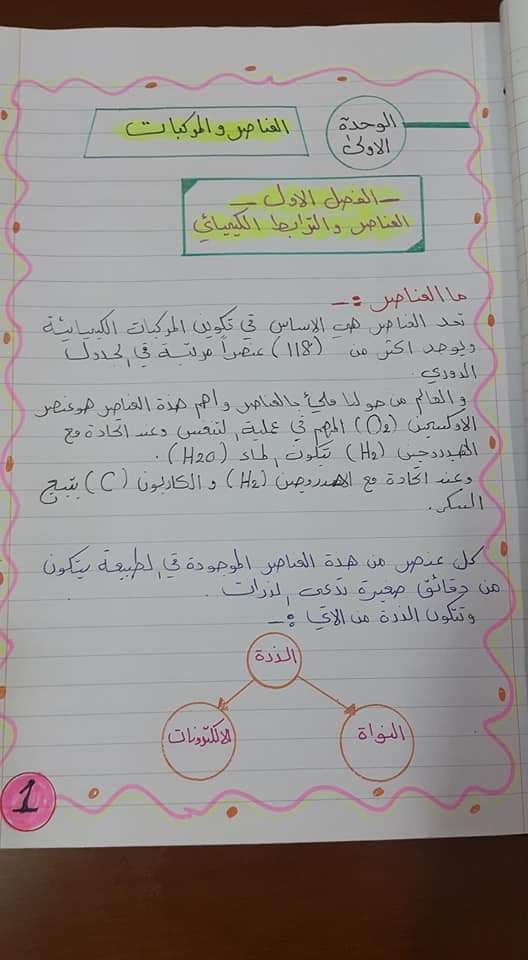 الوحدة
الاولى
العناصر والمركبات
- الفصل الاول -
العناصر والترابط الكيميائي
ما العناصر :-
تعد العناصر هي الاساس في تكوين المركبات الكيميائية
ويوجد اكثر من (118) عنصراً مرتبة في الجدول
الدوري.
والعالم من حولنا مليئ بالعناصر وأهم هذة العناصر هو عنصر
الاوكسجين (O2) المهم في عملية التنفس وعند اتحادة مع
الهيدروجين (H2) يتكون الماء (H2O).
وعند اتحادة مع الهيدروجين (H2) والكاربون (C) ينتج
السكر.
كل عنصر من هدة العناصر الموجودة في الطبيعة يتكون
من دقائق صغيرة تدعى الذرات.
وتتكون الذرة من الاتي :-
الذرة
النواة
الالكترونات
1